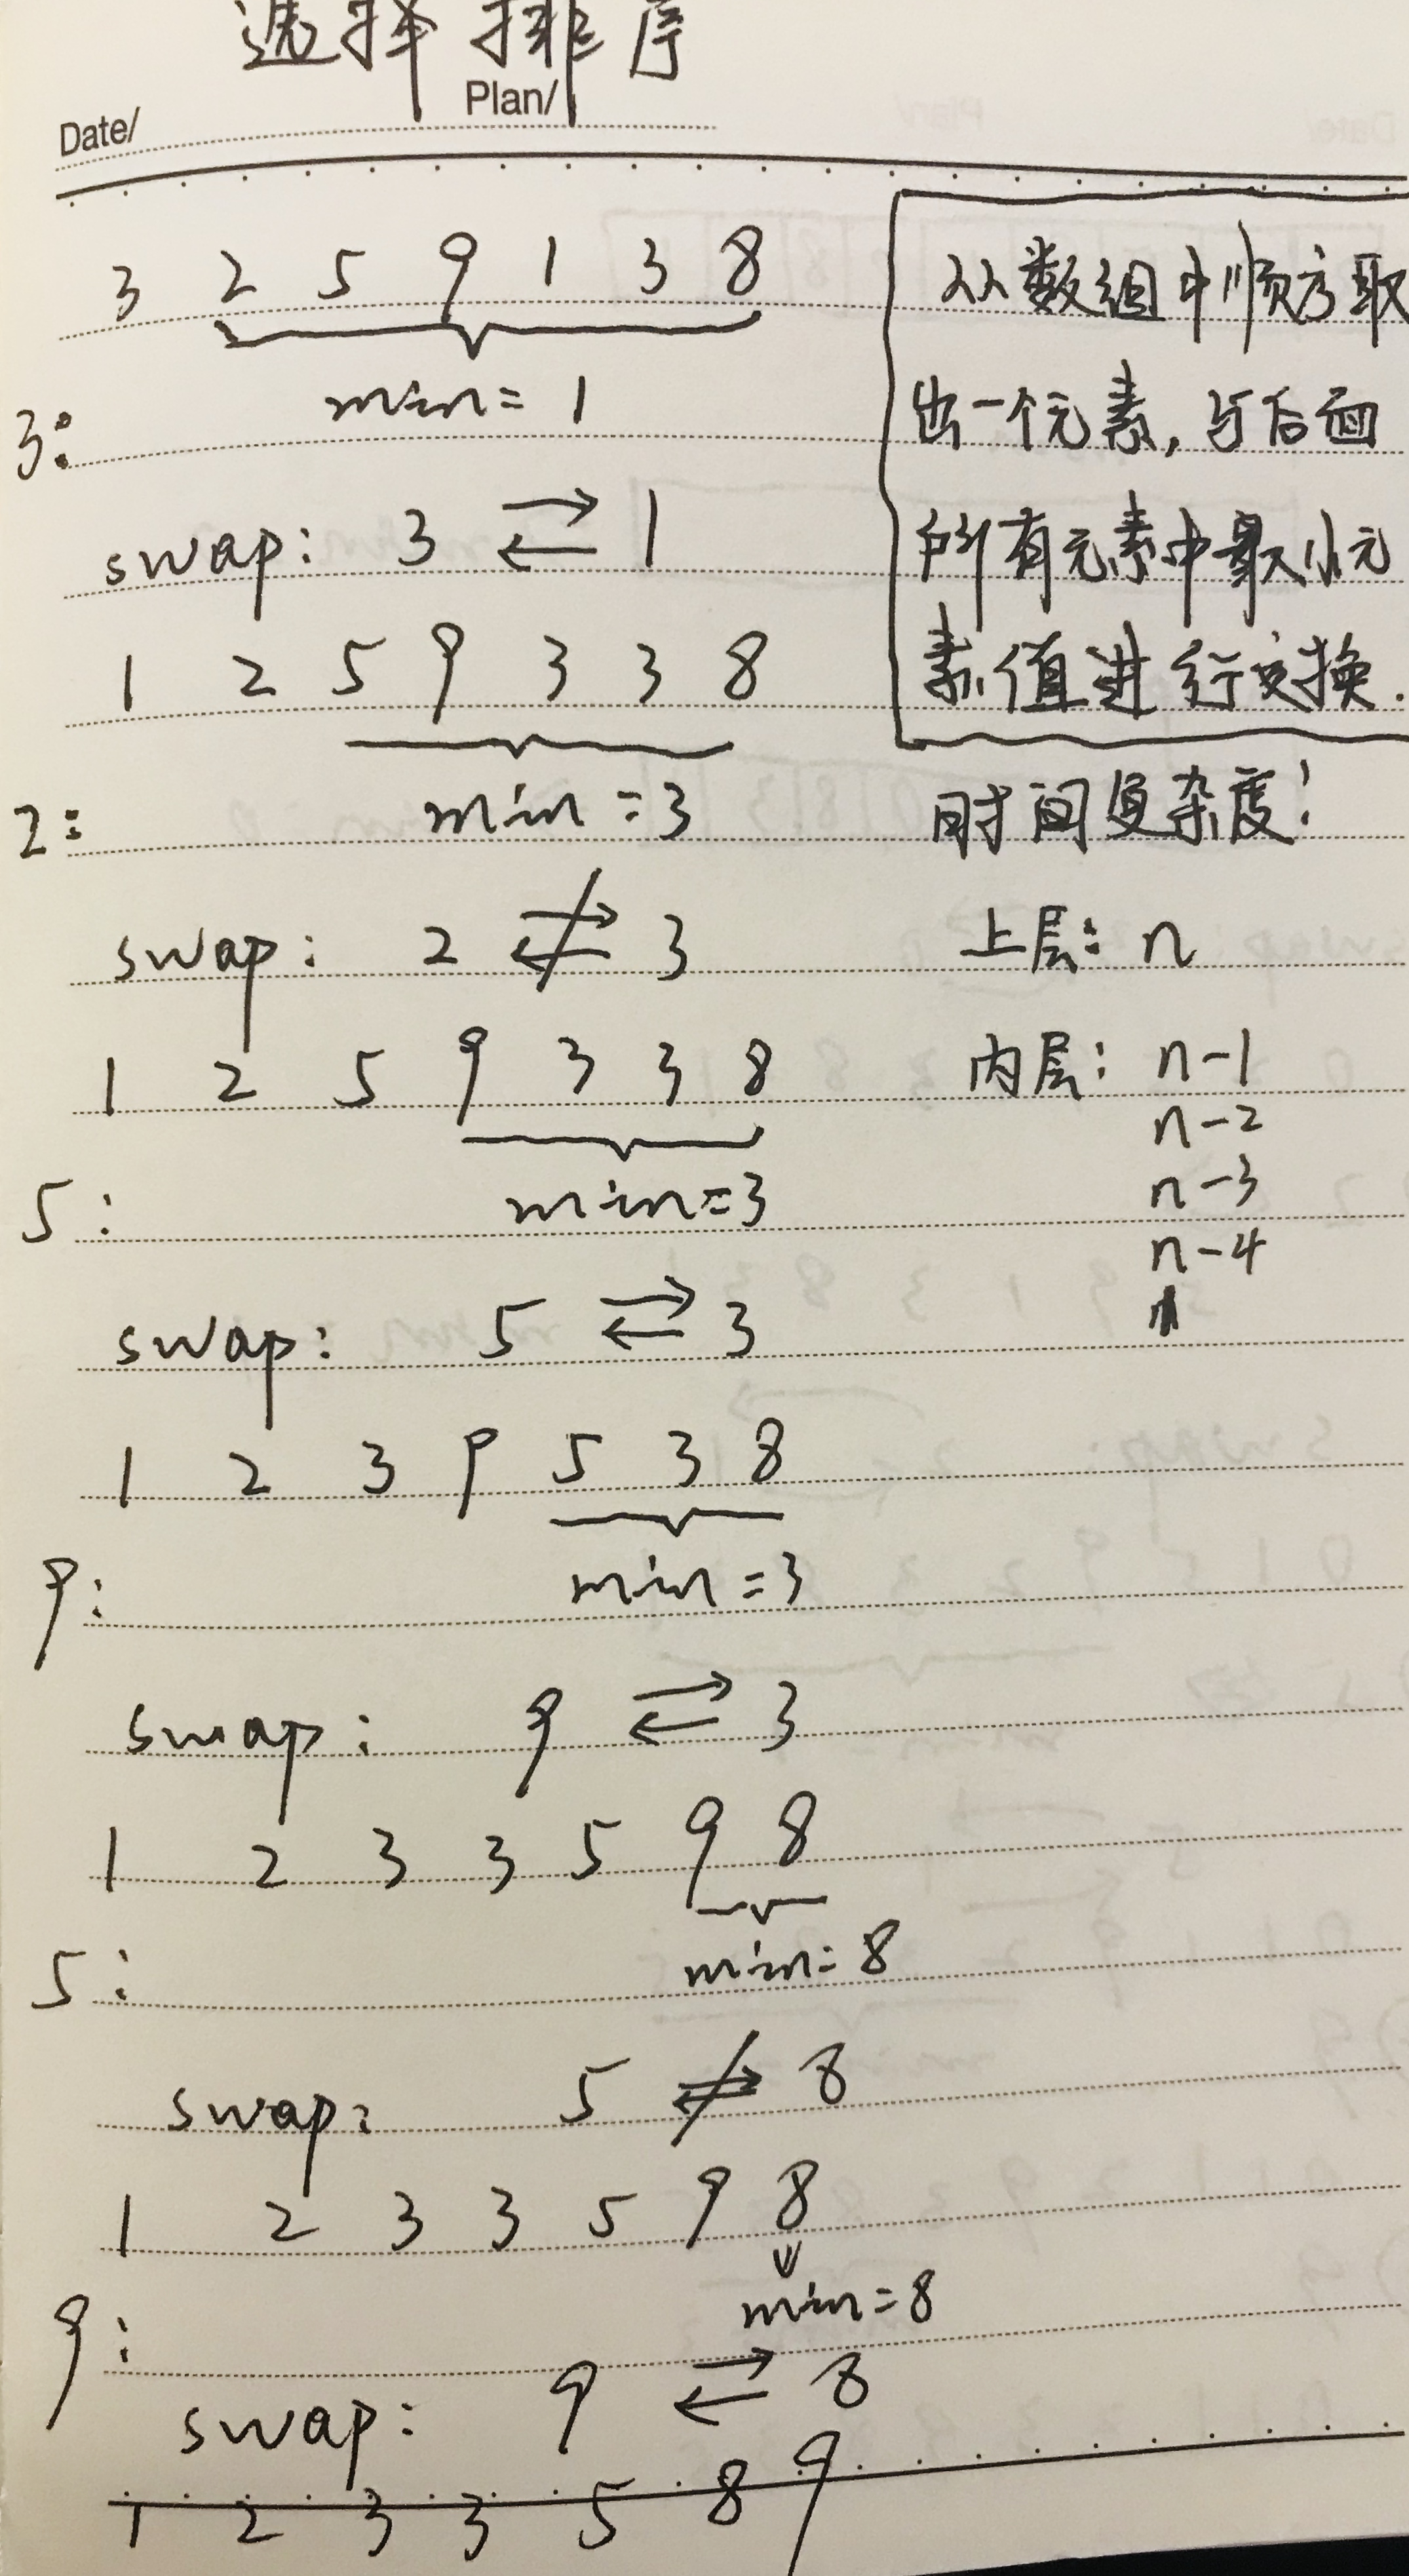 选择排序
Date/
Plan/
3 2 5 9 1 3 8
min=1
3:
swap: 3 ⇄ 1
1 2 5 9 3 3 8
min=3
2:
swap: 2 ⇄ 3
1 2 5 9 3 3 8
min=3
5:
swap: 5 ⇄ 3
1 2 3 9 5 3 8
min=3
9:
swap: 9 ⇄ 3
1 2 3 3 5 9 8
min=8
5:
swap: 5 ⇄ 8
1 2 3 3 5 9 8
min=8
9:
swap: 9 ⇄ 8
1 2 3 3 5 8 9
从数组中顺序取
出一个元素,与后面
所有元素中最小元
素值进行交换.
时间复杂度:
上层: n
内层: n-1
n-2
n-3
n-4